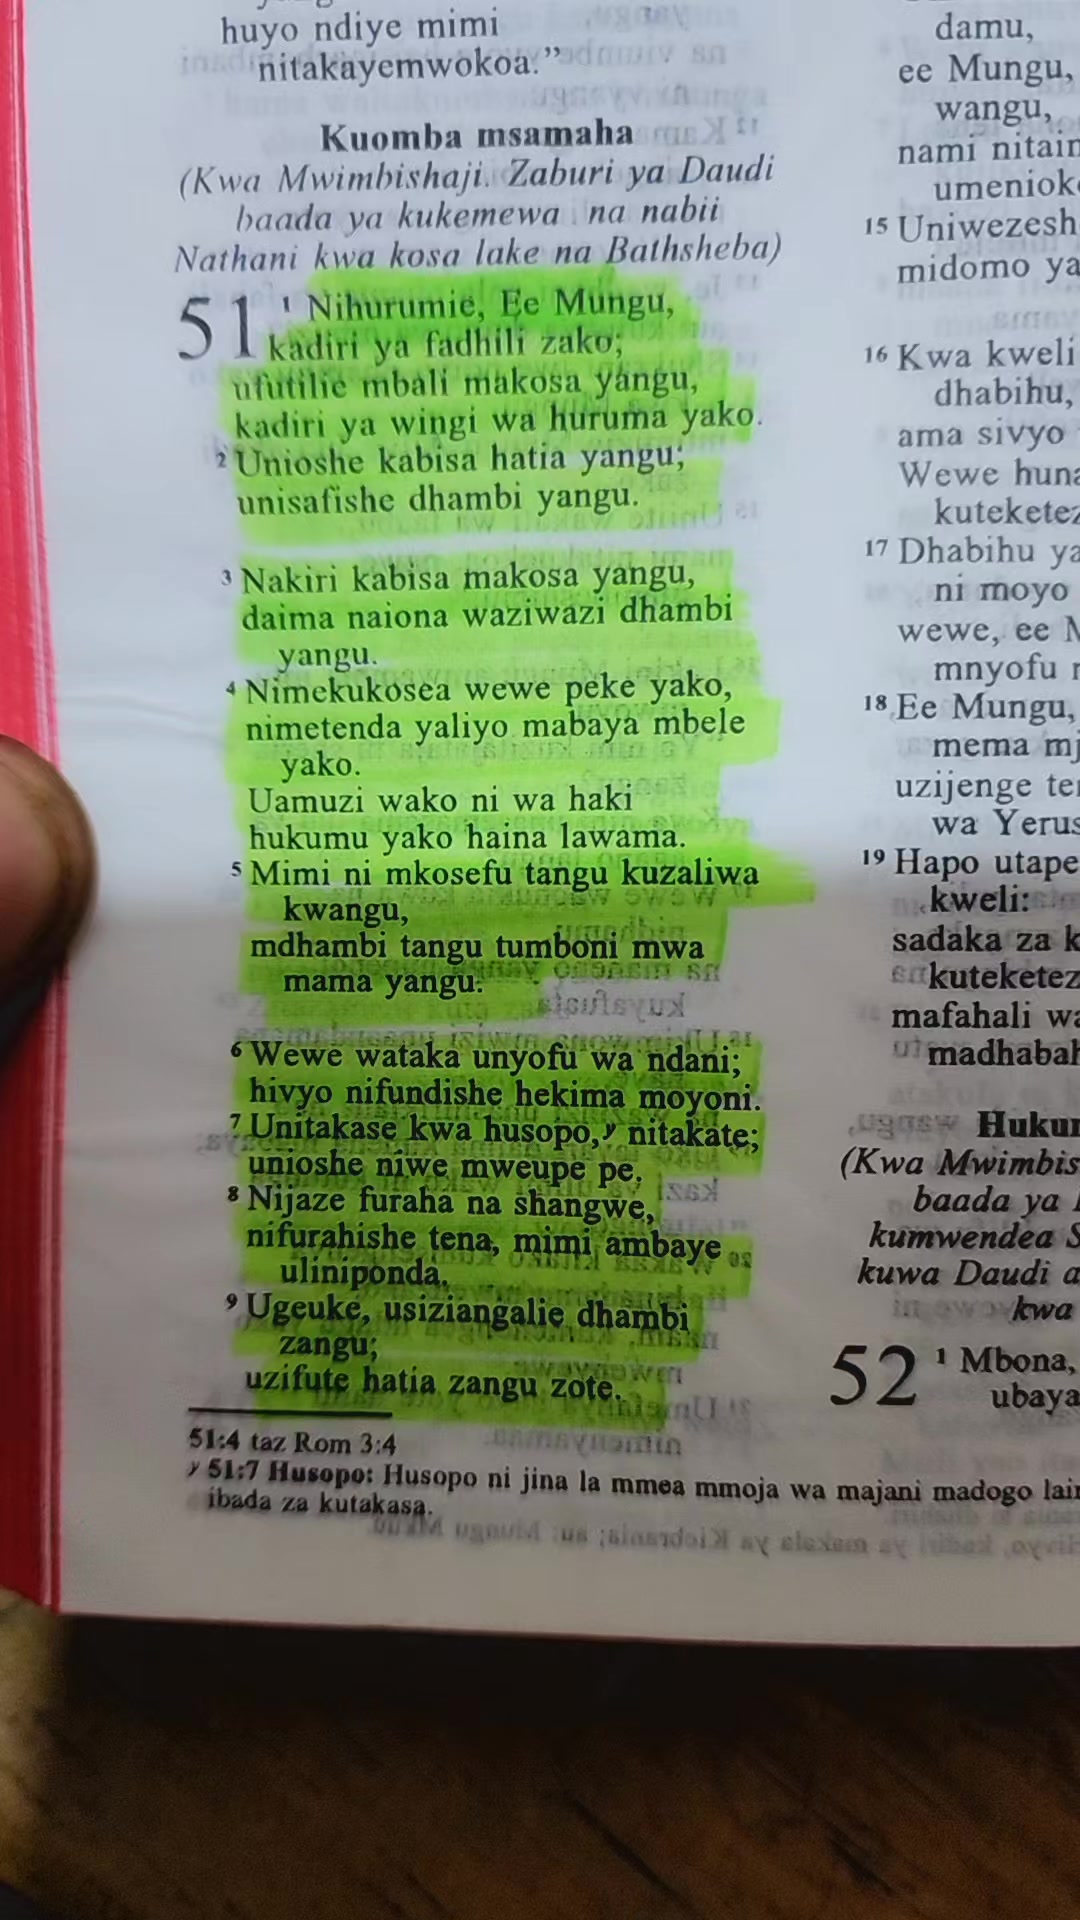 huyo ndiye mimi
nitakayemwokoa.”
Kuomba msamaha
(Kwa Mwimbishaji. Zaburi ya Daudi
baada ya kukemewa na nabii
Nathani kwa kosa lake na Bathsheba)
51 ¹ Nihurumie, Ee Mungu,
kadiri ya fadhili zako;
ufutilie mbali makosa yangu,
kadiri ya wingi wa huruma yako.
² Unioshe kabisa hatia yangu;
unisafishe dhambi yangu.
³ Nakiri kabisa makosa yangu,
daima naiona waziwazi dhambi
yangu.
⁴ Nimekukosea wewe peke yako,
nimetenda yaliyo mabaya mbele
yako.
Uamuzi wako ni wa haki
hukumu yako haina lawama.
⁵ Mimi ni mkosefu tangu kuzaliwa
kwangu,
mdhambi tangu tumboni mwa
mama yangu.
⁶ Wewe wataka unyofu wa ndani;
hivyo nifundishe hekima moyoni.
⁷ Unitakase kwa husopo,ʸ nitakate;
unioshe niwe mweupe pe.
⁸ Nijaze furaha na shangwe,
nifurahishe tena, mimi ambaye
uliniponda.
⁹ Ugeuke, usiziangalie dhambi
zangu;
uzifute hatia zangu zote.
51:4 taz Rom 3:4
ʸ 51:7 Husopo: Husopo ni jina la mmea mmoja wa majani madogo
ibada za kutakasa.
damu,
ee Mungu,
wangu,
nami
¹⁵
midomo
¹⁶ Kwa kweli
dhabihu,
ama sivyo
Wewe
¹⁷ Dhabihu
ni moyo
wewe, ee
mnyofu
¹⁸ Ee Mungu,
mema
uzijenge
wa
¹⁹ Hapo
kweli:
sadaka za
mafahali
(Kwa
baada ya
kumwendea
kuwa Daudi
kwa
52 ¹ Mbona,